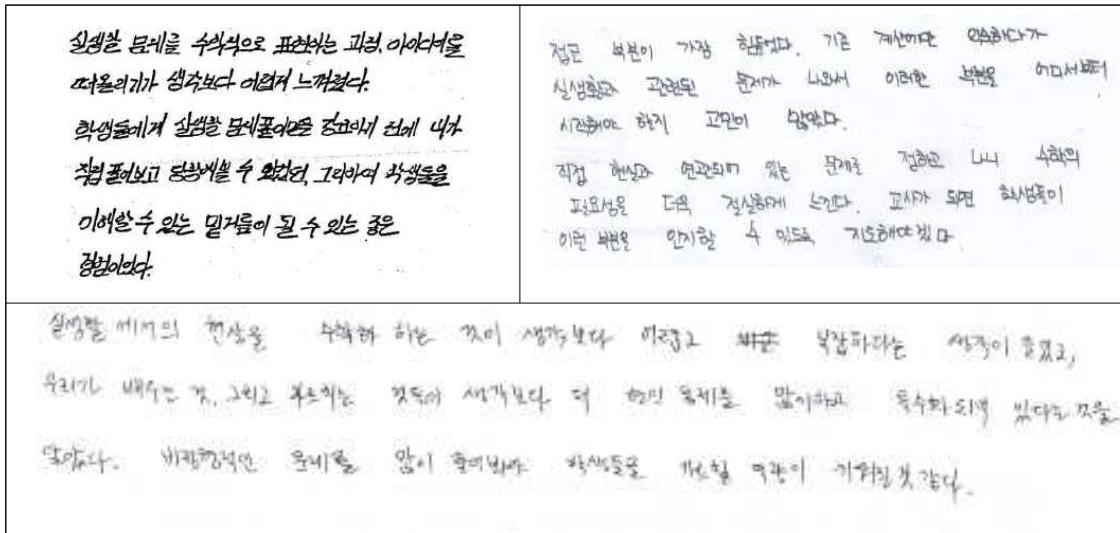 실생활 문제를 수학적으로 표현하는 과정, 아이디어를
떠올리기가 생각보다 어렵게 느껴졌다.
학생들에게 실생활 문제풀이만을 강요하기 전에 내가
직접 풀어보고 당황해볼 수 있었던, 그리하여 학생들을
이해할 수 있는 밑거름이 될 수 있는 좋은
경험이었다.
접근 부분이 가장 힘들었다. 기존 계산에만 익숙하다가
실생활과 관련된 문제가 나와서 이러한 부분을 어디서부터
시작해야 할지 고민이 많았다.
직접 현실과 연관되어 있는 문제를 접하고 나니 수학의
필요성을 더욱 절실하게 느낀다. 교사가 되면 학생들이
이런 부분을 인지할 수 있도록 지도해야겠다.
실생활에서의 현상을 수학화 하는 것이 생각보다 어렵고 복잡하다는 생각이 들었고,
우리가 배우는 것, 그리고 가르치는 것들이 생각보다 더 많이하고 특수화 되어 있다는 것을
알았다. 비정형적인 문제를 많이 풀어봐야 학생들을 가르칠 역량이 키워질 것 같다.